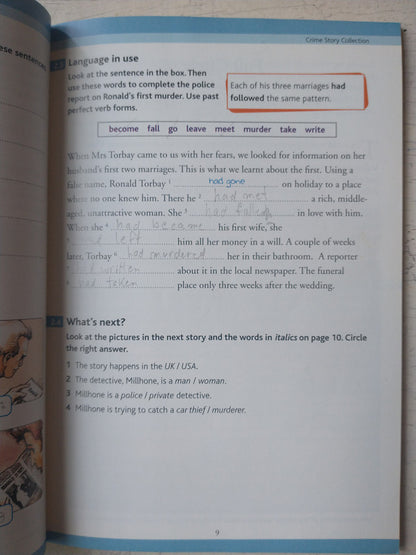 Crime Story Collection
ese sentences
2.3 Language in use
Look at the sentence in the box. Then
use these words to complete the police
report on Ronald's first murder. Use past
perfect verb forms.
Each of his three marriages had
followed the same pattern.
become fall go leave meet murder take write
When Mrs Torbay came to us with her fears, we looked for information on her
husband's first two marriages. This is what we learnt about the first. Using a
false name, Ronald Torbay 1 had gone on holiday to a place
where no one knew him. There he 2 had met a rich, middle-
aged, unattractive woman. She 3 had falled in love with him.
When she 4 had became his first wife, she
5 had left him all her money in a will. A couple of weeks
later, Torbay 6 had murdered her in their bathroom. A reporter
7 had written about it in the local newspaper. The funeral
8 had token place only three weeks after the wedding.
2.4 What's next?
Look at the pictures in the next story and the words in italics on page 10. Circle
the right answer.
1 The story happens in the UK / USA.
2 The detective, Millhone, is a man / woman.
3 Millhone is a police / private detective.
4 Millhone is trying to catch a car thief / murderer.
9